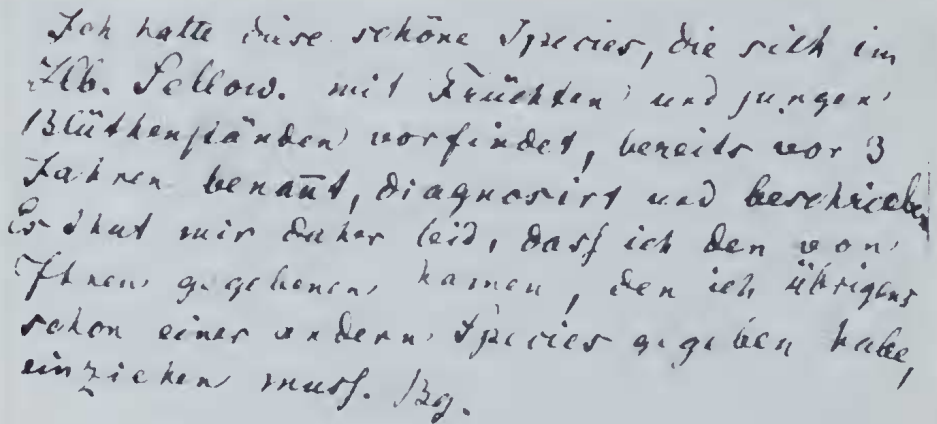 Ich hatte diese schöne Species, die sich im
Hb. Sellow. mit Früchten und jungen
Blüthenständen vorfindet, bereits vor 3
Jahren benan̄t, diagnosirt und beschrieben
Es thut mir daher leid, dass ich den von
Ihnen gegebenen Namen, den ich übrigens
schon einer andern Species gegeben habe,
einziehen muss. Bg.